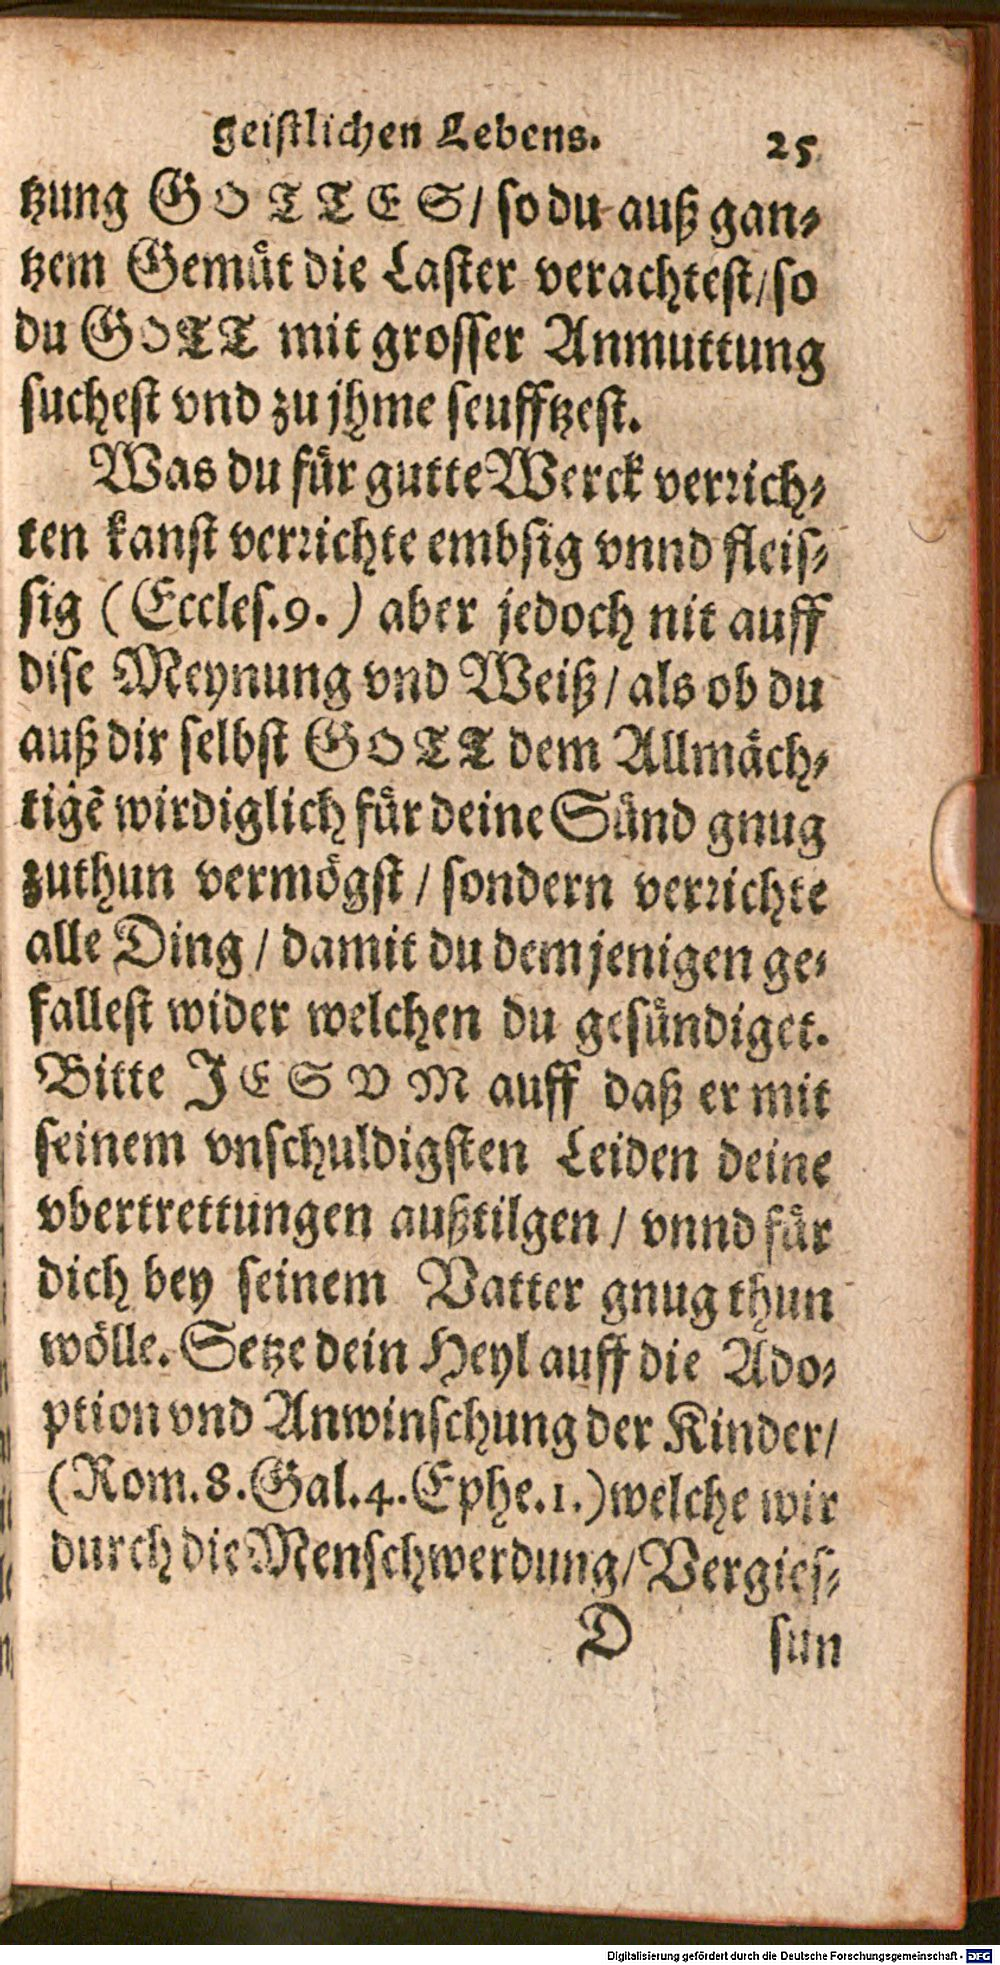 geistlichen Lebens. 25
tzung GOTTES/ so du auß gan-
tzem Gemüt die Laster verachtest/ so
du GOTT mit grosser Anmuttung
suchest vnd zu jhme seufftzest.
Was du für gutte Werck verrich-
ten kanst verrichte embsig vnnd fleis-
sig (Eccles.9.) aber jedoch nit auff
dise Meynung vnd Weiß/ als ob du
auß dir selbst GOTT dem Allmäch-
tigē wirdiglich für deine Sünd gnug
zuthun vermögst/ sondern verrichte
alle Ding/ damit du demjenigen ge-
fallest wider welchen du gesündiget.
Bitte JESVM auff daß er mit
seinem vnschuldigsten Leiden deine
vbertrettungen außtilgen/ vnnd für
dich bey seinem Vatter gnug thun
wölle. Setze dein Heyl auff die Ado-
ption vnd Anwinschung der Kinder/
(Rom.8.Gal.4.Ephe.1.) welche wir
durch die Menschwerdung/ Vergies-
D sun
Digitalisierung gefördert durch die Deutsche Forschungsgemeinschaft - DFG